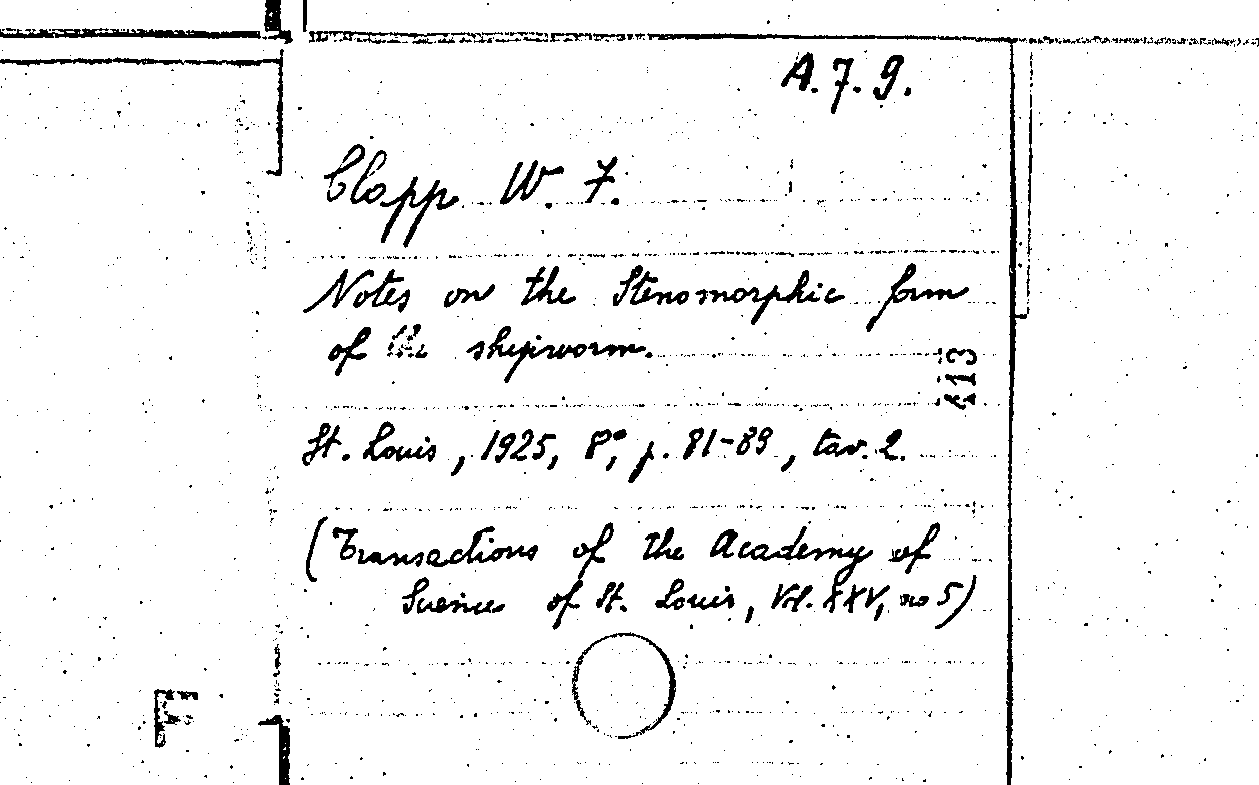 A.7.9.
Clapp W. F.
Notes on the Stenomorphic form
of the shipworm.
113
St. Louis, 1925, 8°, p. 81-89, tav. 2.
(Transactions of the Academy of
Science of St. Louis, Vol. XXV, no 5)
F